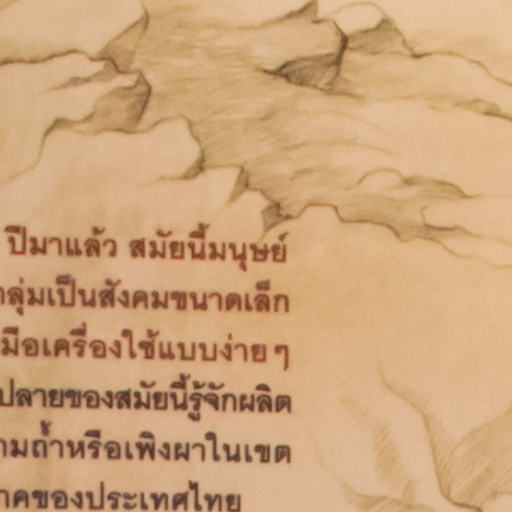 ปีมาแล้ว สมัยนี้มนุษย์
กลุ่มเป็นสังคมขนาดเล็ก
มือเครื่องใช้แบบง่าย ๆ
ปลายของสมัยนี้รู้จักผลิต
ามถ้ำหรือเพิงผาในเขต
าคของประเทศไทย